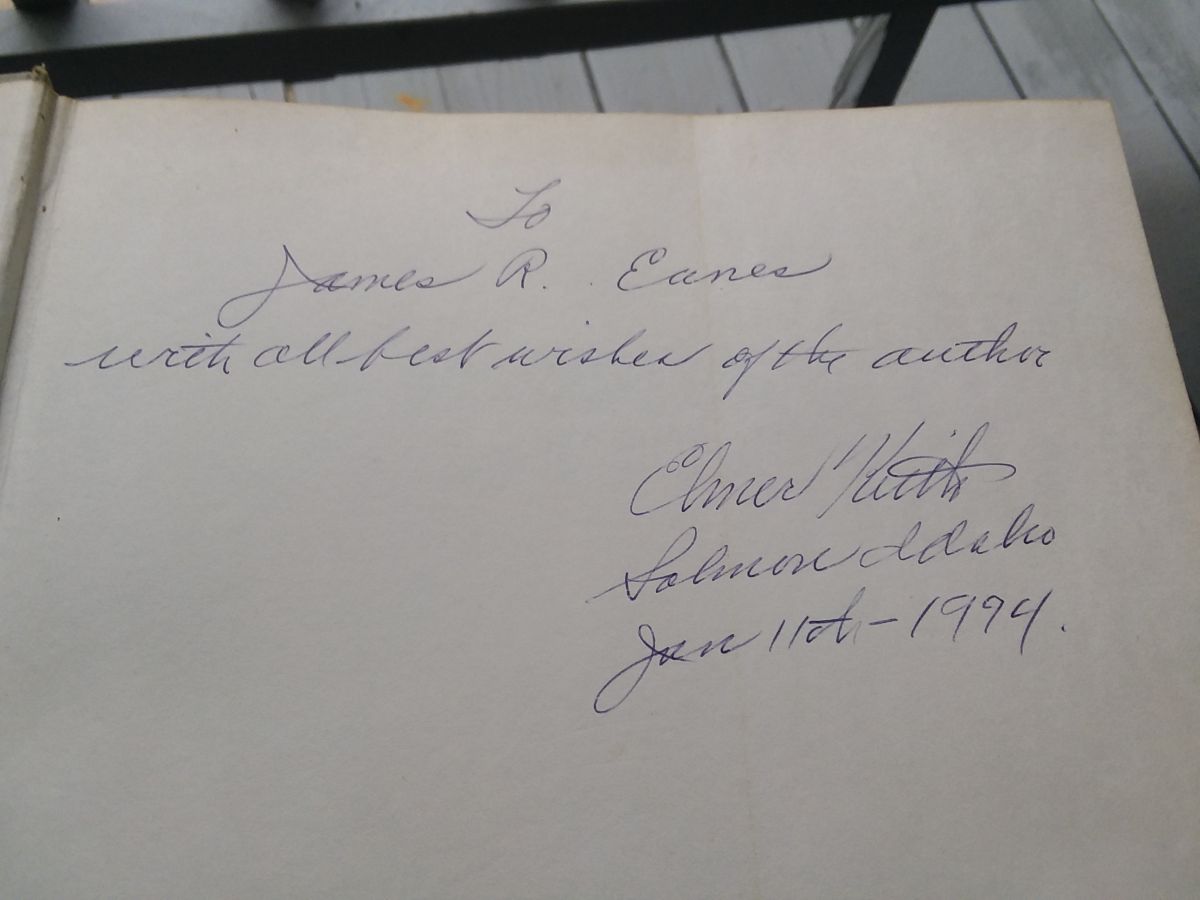 To
James R. Eanes
with all best wishes of the author
Elmer Keith
Salmon Idaho
Jan 11th - 1974.